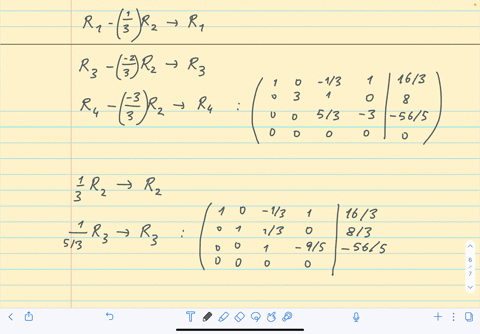 R₁ - (1/3)R₂ → R₁
R₃ - (-2/3)R₂ → R₃
R₄ - (-3/3)R₂ → R₄ :
1 0 -1/3 1 | 16/3
0 3 1 0 | 8
0 0 5/3 -3 | -56/5
0 0 0 0 | 0
1/3 R₂ → R₂
1/(5/3) R₃ → R₃ :
1 0 -1/3 1 | 16/3
0 1 1/3 0 | 8/3
0 0 1 -9/5 | -56/5
0 0 0 0 |
6
7